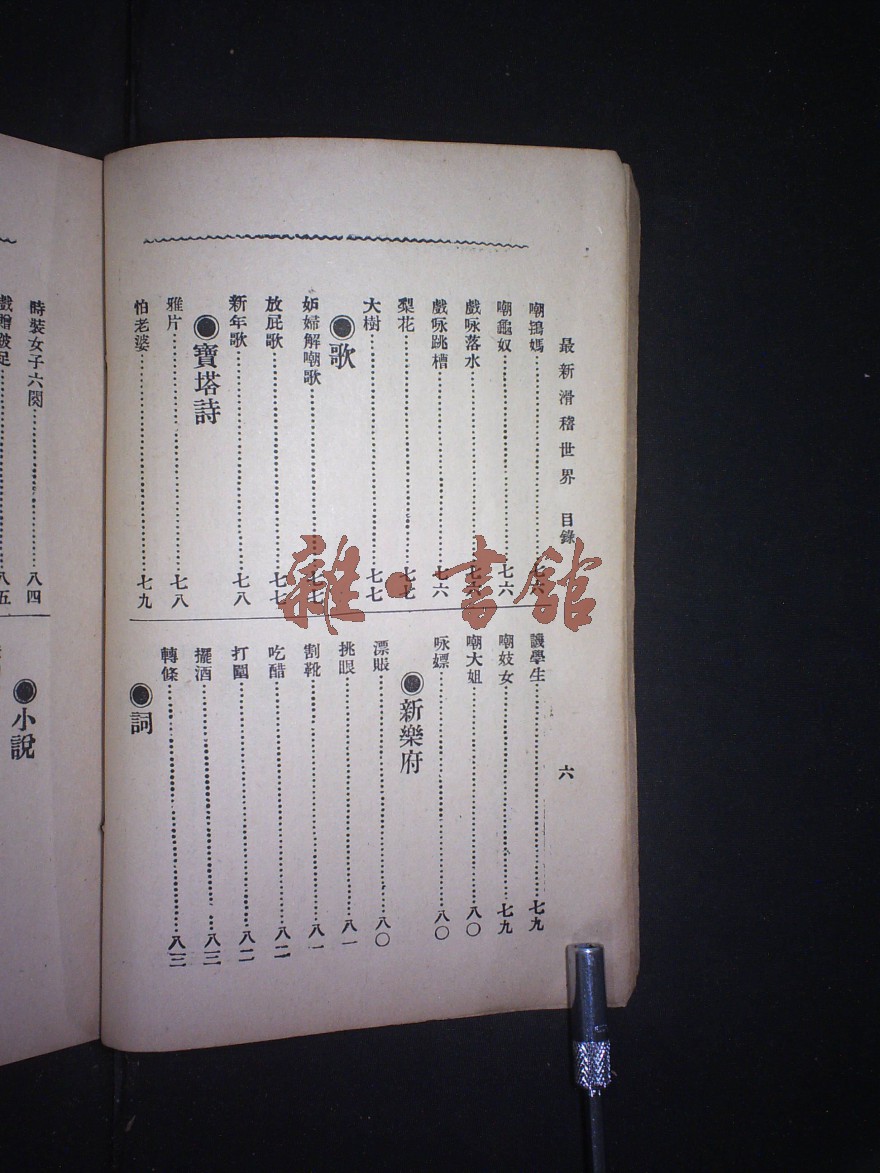 最新滑稽世界 目錄 六
嘲鴇媽 七六
嘲龜奴 七六
戲咏落水 七六
戲咏跳槽 七六
梨花 七七
大樹 七七
●歌
妒婦解嘲歌 七七
放屁歌 七七
新年歌 七八
●寶塔詩
雅片 七八
怕老婆 七九
譏學生 七九
嘲妓女 七九
嘲大姐 八〇
咏嫖 八〇
●新樂府
漂賬 八〇
挑眼 八一
割靴 八一
吃醋 八二
打圍 八二
擺酒 八三
轉條 八三
●詞
時裝女子六闋 八四
戲贈跛足 八五
●小說
雜·書館